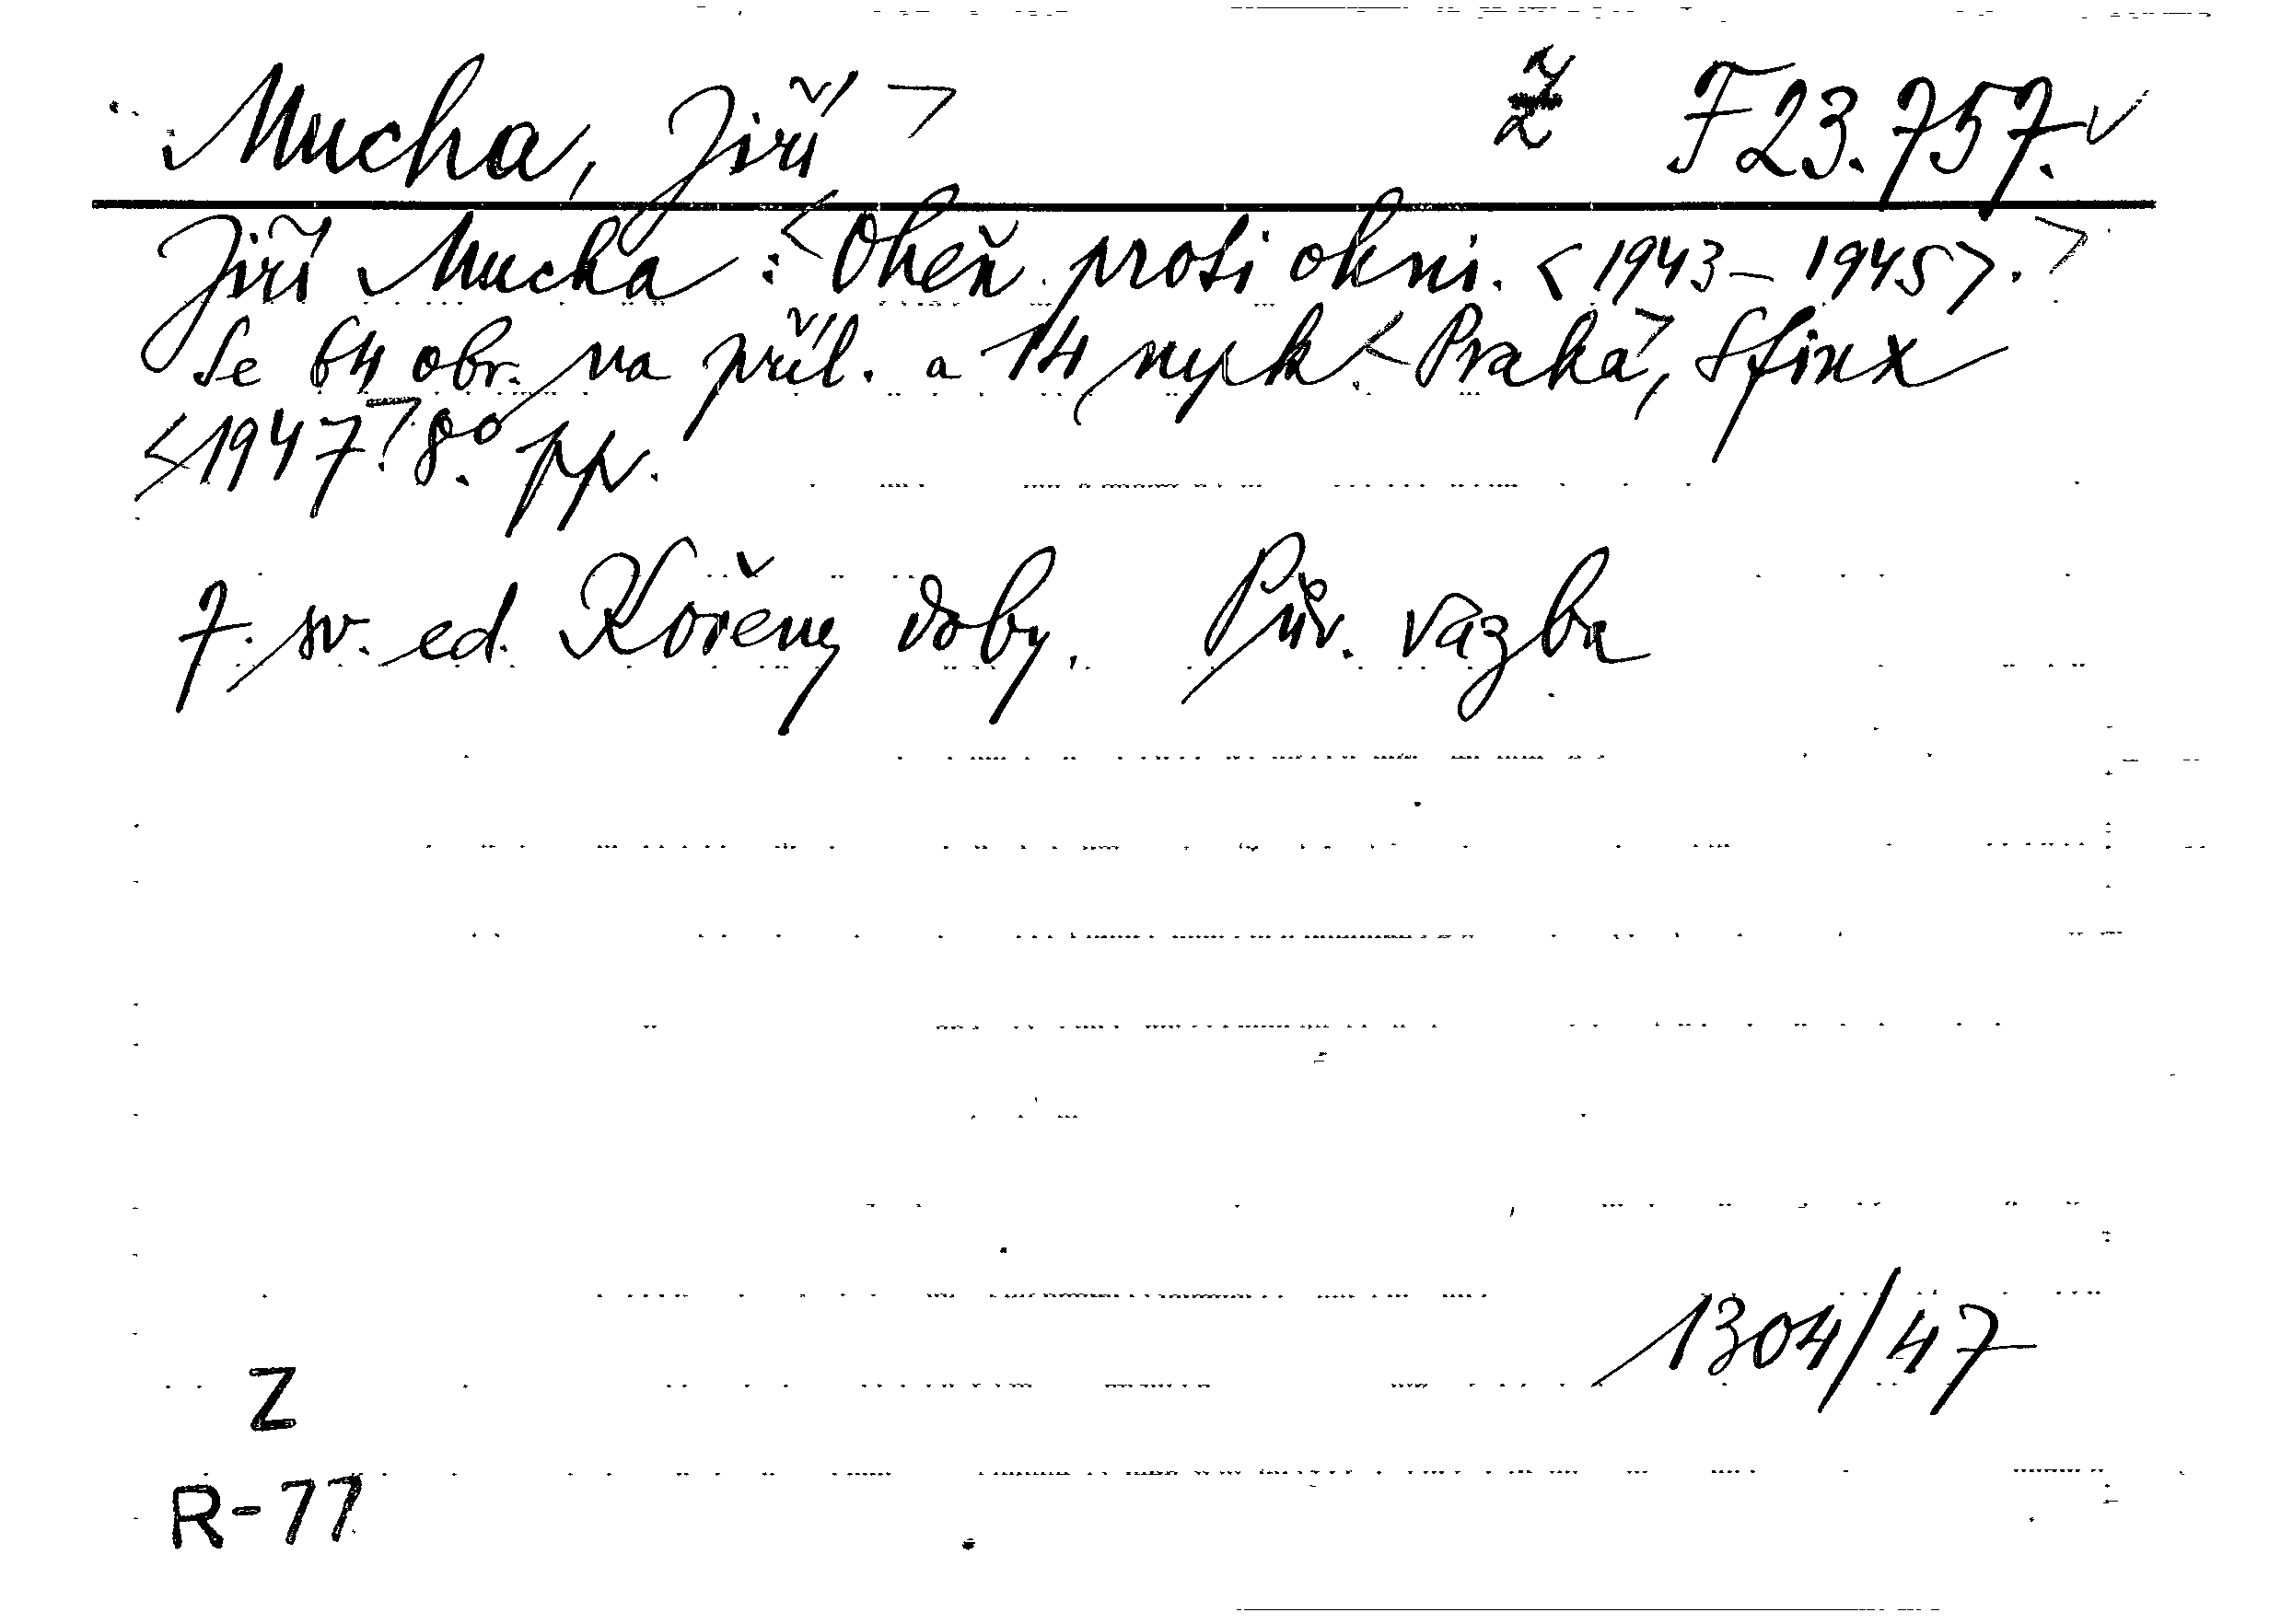 Mucha, Jiří> Z F 23.757.
Jiří Mucha: <Oheň proti ohni. <1943–1945>.>
Se 64 obr. na příl. a 14 nyčk. <Praha>, Sfinx
<1947>. 8°. pp.
7. sv. ed. Kořeny doby. Pův. vazba
1304/47
Z
R-77